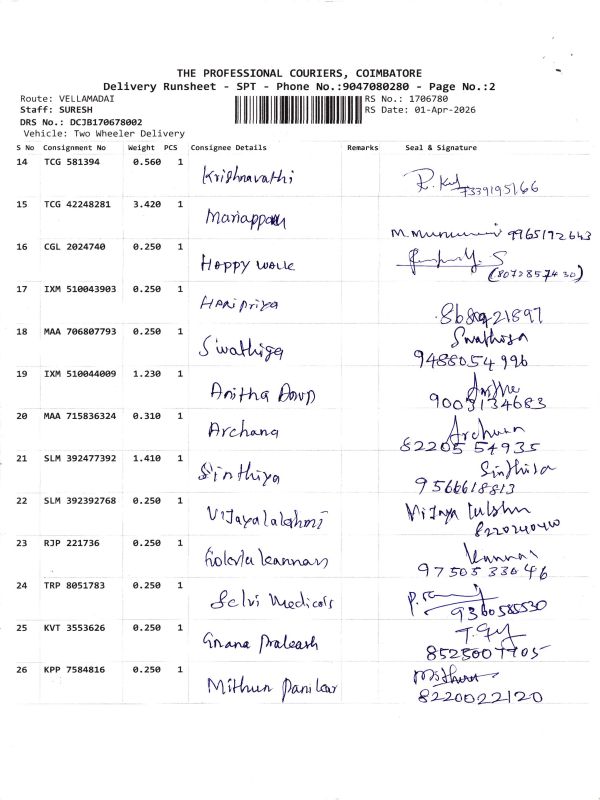 THE PROFESSIONAL COURIERS, COIMBATORE
Delivery Runsheet - SPT - Phone No.:9047080280 - Page No.:2
Route: VELLAMADAI
RS No.: 1706780
Staff: SURESH
RS Date: 01-Apr-2026
DRS No.: DCJB170678002
Vehicle: Two Wheeler Delivery
S No Consignment No Weight PCS Consignee Details Remarks Seal & Signature
14 TCG 581394 0.560 1 Krishnavathi 7339195166
15 TCG 42248281 3.420 1 Mariappan 9965192643
16 CGL 2024740 0.250 1 Happy work (8072857430)
17 IXM 510043903 0.250 1 Haripriya
18 MAA 706807793 0.250 1 Swathiga 9488054996
19 IXM 510044009 1.230 1 Anitha 9003134683
20 MAA 715836324 0.310 1 Archana 8220554935
21 SLM 392477392 1.410 1 Sinthiya 9566618813
22 SLM 392392768 0.250 1 Vijayalakshmi 8220240410
23 RJP 221736 0.250 1 Kannan 9750533046
24 TRP 8051783 0.250 1 Selvi Medicals 9360585530
25 KVT 3553626 0.250 1 Gnana Prakash 8525007705
26 KPP 7584816 0.250 1 Mithun 8220022120